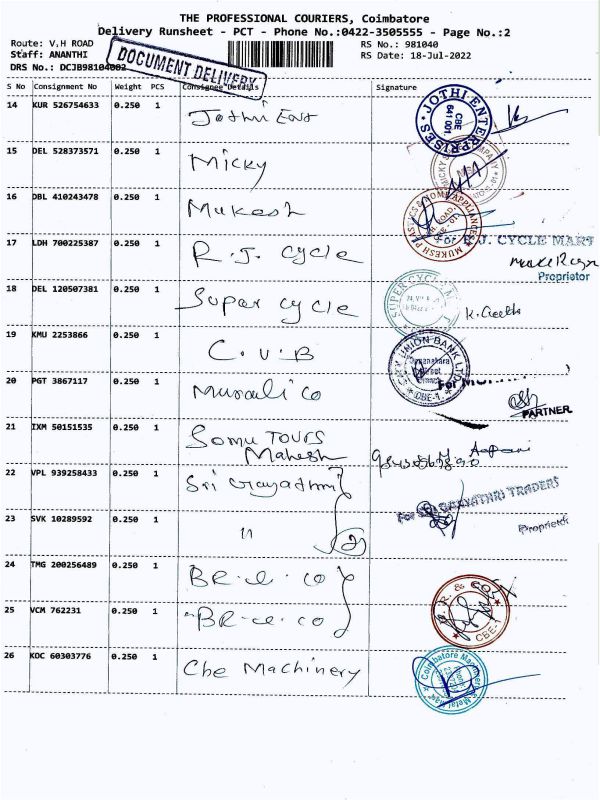 THE PROFESSIONAL COURIERS, Coimbatore
Delivery Runsheet - PCT - Phone No.:0422-3505555 - Page No.:2
Route: V.H ROAD RS No.: 981040
Staff: ANANTHI RS Date: 18-Jul-2022
DRS No.: DCJB98104002
DOCUMENT DELIVERY
S No Consignment No Weight PCS Consignee Details Signature
14 KUR 526754633 0.250 1 Jothi East
JOTHI ENTERPRISES CBE 641 001
15 DEL 528373571 0.250 1 Micky
16 DBL 410243478 0.250 1 Mukesh
MUKESH PLASTICS & HOME APPLIANCES
17 LDH 700225387 0.250 1 R.J. cycle
For R.J. CYCLE MART
Proprietor
18 DEL 120507381 0.250 1 Super cycle
SUPER CYCLE
K. Geetha
19 KMU 2253866 0.250 1 C.U.B
CITY UNION BANK LTD. CBE-1.
20 PGT 3867117 0.250 1 Murali co
For
PARTNER
21 IXM 50151535 0.250 1 Somu TOURS
Mahesh
22 VPL 939258433 0.250 1 Sri Gayathri
For SRI GAYATHRI TRADERS
Proprietor
23 SVK 10289592 0.250 1 "
2
24 TMG 200256489 0.250 1
25 VCM 762231 0.250 1
CBE-1
26 KOC 60303776 0.250 1 Cbe Machinery
Coimbatore Machinery & Metal Mart